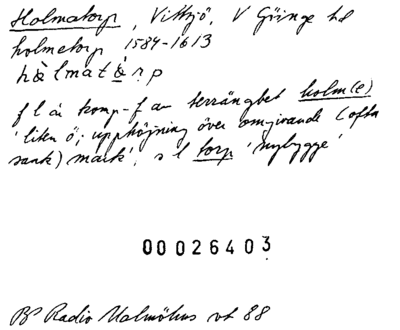 Holmatorp, Vittsjö, V Göinge hd
holmetorp 1584-1613
hålmatårp
f l är komp-f av terrängbet holm(e)
'liten ö; upphöjning över omgivande (ofta
sank) mark', s l torp 'nybygge'
00026403
BP Radio Malmöhus vt 88